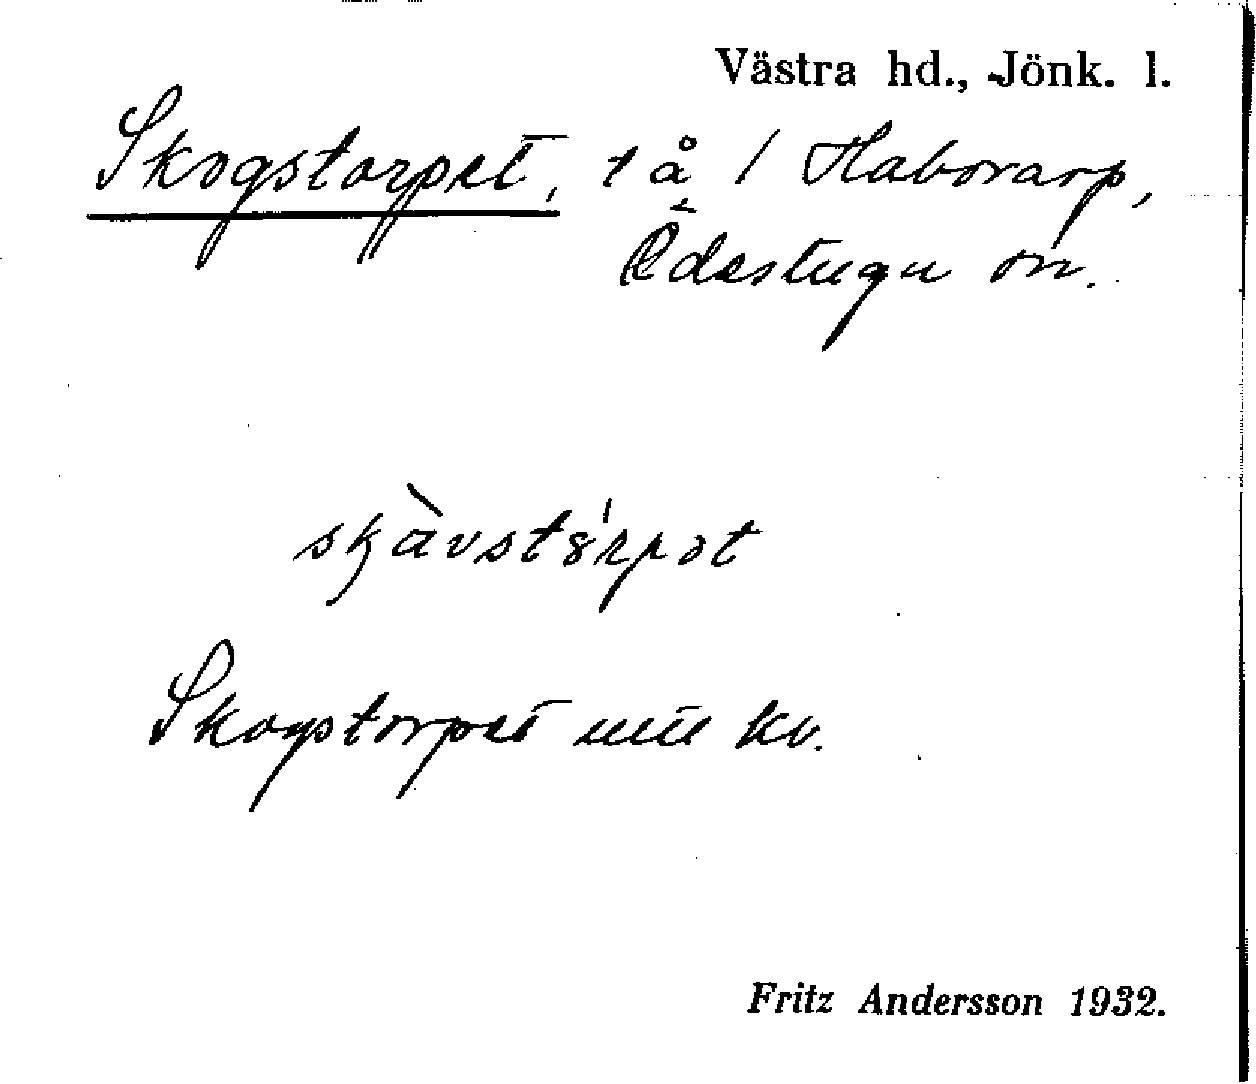 Västra hd., Jönk. l.
Skogstorpet, t å / Haborarp,
Ödestugu sn.
Skogstorpet utu kv.
Fritz Andersson 1932.